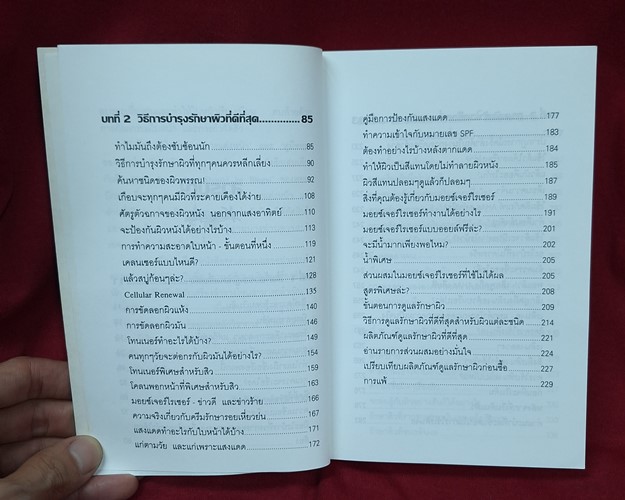 บทที่ 2 วิธีการบำรุงรักษาผิวที่ดีที่สุด..............85
ทำไมมันถึงต้องซับซ้อนนัก 85
วิธีการบำรุงรักษาผิวที่ทุกๆคนควรหลีกเลี่ยง 90
ค้นหาชนิดของผิวพรรณ! 92
เกือบจะทุกๆคนมีผิวที่ระคายเคืองได้ง่าย 108
ศัตรูตัวฉกาจของผิวหนัง นอกจากแสงอาทิตย์ 110
จะป้องกันผิวหนังได้อย่างไรบ้าง 113
การทำความสะอาดใบหน้า - ขั้นตอนที่หนึ่ง 119
เคลนเซอร์แบบไหนดี? 121
แล้วสบู่ก้อนๆล่ะ? 128
Cellular Renewal 135
การขัดลอกผิวแห้ง 140
การขัดลอกผิวมัน 146
โทนเนอร์ทำอะไรได้บ้าง? 149
คนทุกๆวัยจะต่อกรกับผิวมันได้อย่างไร? 154
โทนเนอร์พิเศษสำหรับสิว 159
โคลนพอกหน้าที่พิเศษสำหรับสิว 163
มอยซ์เจอร์ไรเซอร์ - ข่าวดี และข่าวร้าย 166
ความจริงเกี่ยวกับครีมรักษารอยเหี่ยวย่น 167
แสงแดดทำอะไรกับใบหน้าได้บ้าง 171
แก่ตามวัย และแก่เพราะแสงแดด 172
คู่มือการป้องกันแสงแดด 177
ทำความเข้าใจกับหมายเลข SPF 183
ต้องทำอย่างไรบ้างหลังตากแดด 184
ทำให้ผิวเป็นสีแทนโดยไม่ทำลายผิวหนัง 185
ผิวสีแทนปลอมๆดูแล้วก็ปลอมๆ 187
สิ่งที่คุณต้องรู้เกี่ยวกับมอยซ์เจอร์ไรเซอร์ 189
มอยซ์เจอร์ไรเซอร์ทำงานได้อย่างไร 191
มอยซ์เจอร์ไรเซอร์แบบออยล์ฟรีล่ะ? 201
จะมีน้ำมากเพียงพอไหม? 202
น้ำพิเศษ 205
ส่วนผสมในมอยซ์เจอร์ไรเซอร์ที่ใช้ไม่ได้ผล 205
สูตรพิเศษล่ะ? 208
ขั้นตอนการดูแลรักษาผิว 209
วิธีการดูแลรักษาผิวที่ดีที่สุดสำหรับผิวแต่ละชนิด 214
ผลิตภัณฑ์ดูแลรักษาผิวที่ดีที่สุด 221
อ่านรายการส่วนผสมอย่างมั่นใจ 224
เปรียบเทียบผลิตภัณฑ์ดูแลรักษาผิวก่อนซื้อ 227
การแพ้ 229